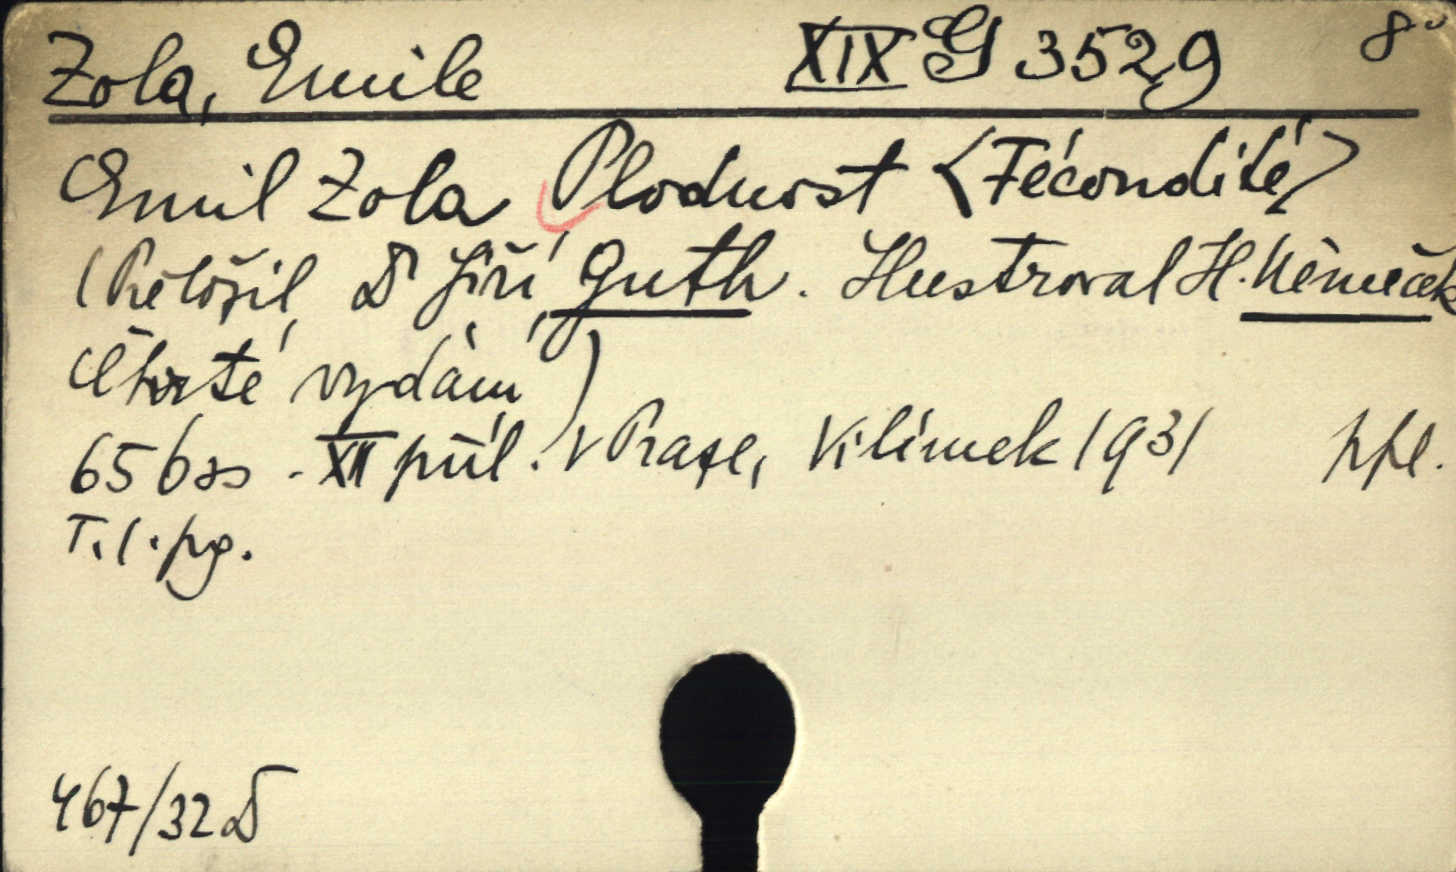 Zola, Emile XIX G 3529 8°
Emil Zola Plodnost <Fécondité>
(Přeložil Dr Jiří Guth. Ilustroval H. Němeček
Čtvrté vydání)
656 ss - XII příl. V Praze, Vilímek 1931 ppl.
T. I. pg.
467/32 D